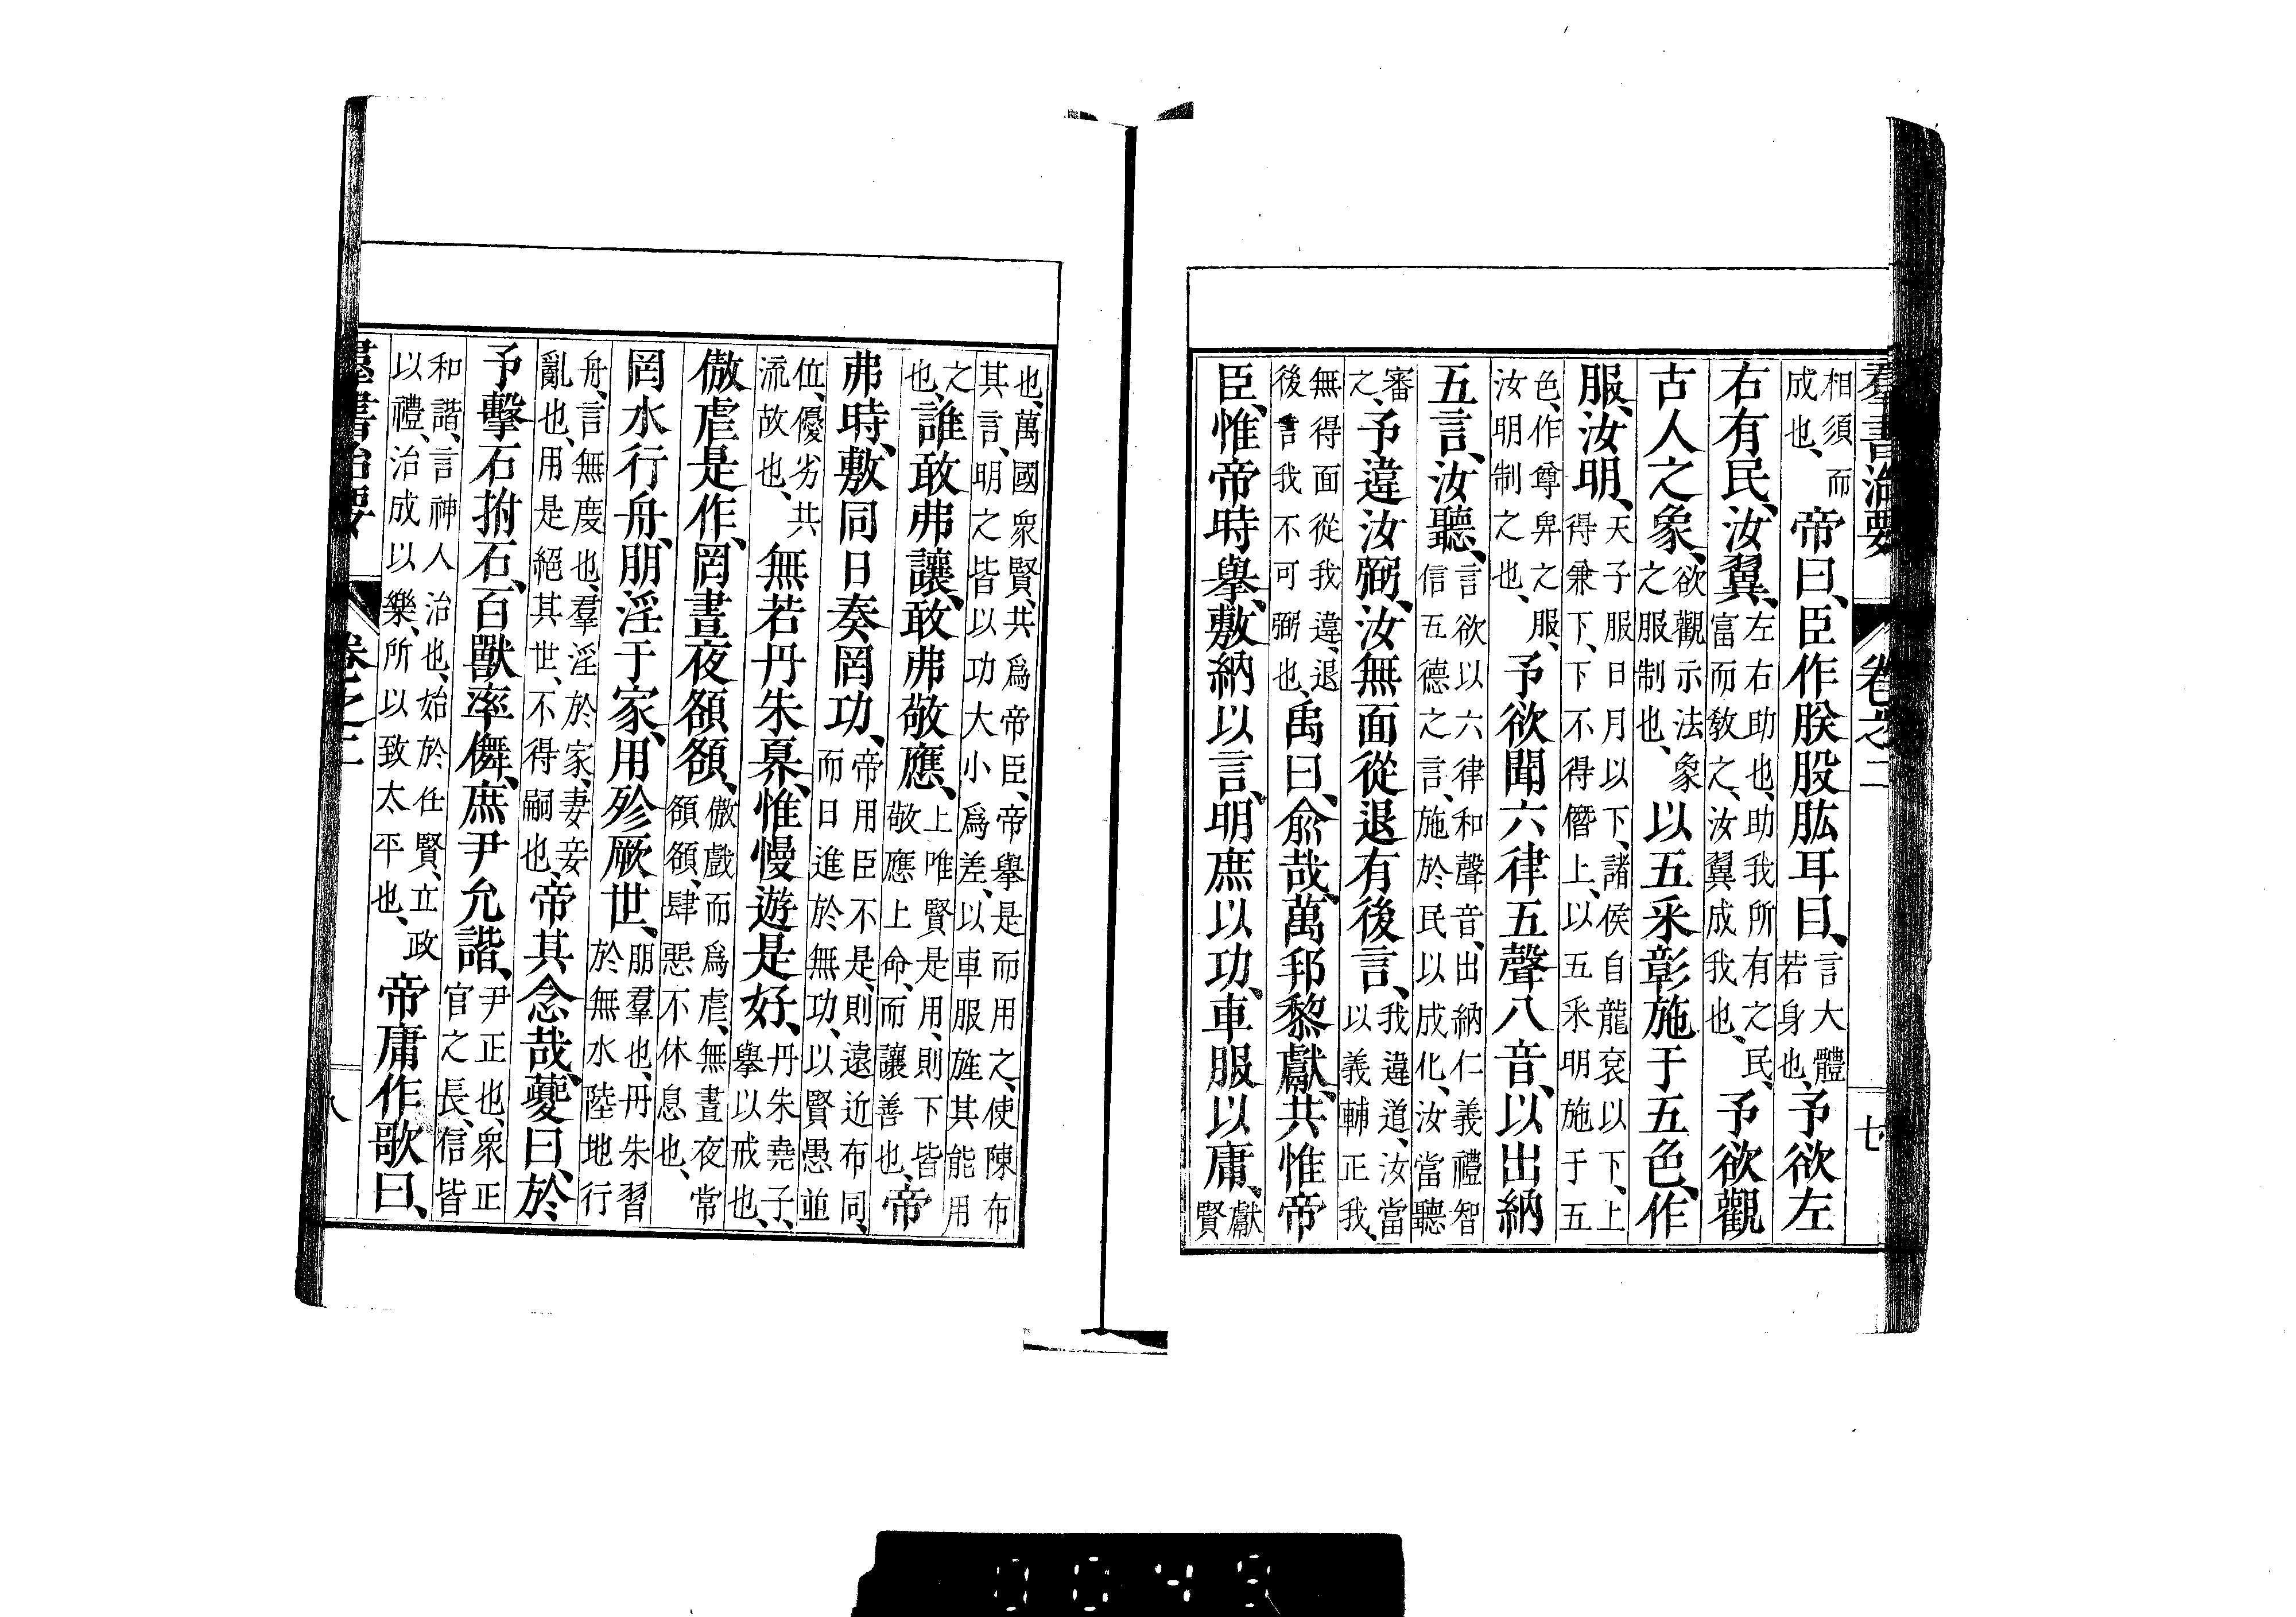 羣書治要 卷之二 七
相須而成也、帝曰、臣作朕股肱耳目、言大體若身也、予欲左
右有民、汝翼、左右助也、助我所有之民、富而敎之、汝翼成我也、予欲觀
古人之象、欲觀示法象之服制也、以五采彰施于五色、作
服、汝明、天子服日月以下、諸侯自龍衮以下、上得兼下、下不得僭上、以五采明施于五
色、作尊卑之服、汝明制之也、予欲聞六律五聲八音、以出納
五言、汝聽、言欲以六律和聲音、出納仁義禮智信五德之言、施於民以成化、汝當聽
審之、予違汝弼、汝無面從退有後言、我違道、汝當以義輔正我、
無得面從我違、退後言我不可弼也、禹曰、俞哉、萬邦黎獻、共惟帝
臣、惟帝時舉、敷納以言、明庶以功、車服以庸、獻賢
也、萬國衆賢、共爲帝臣、帝舉是而用之、使陳布其言、明之皆以功大小爲差、以車服旌其能用
之也、誰敢弗讓、敢弗敬應、上唯賢是用、則下皆敬應上命、而讓善也、帝
弗時、敷同日奏罔功、帝用臣不是、則遠近布同、而日進於無功、以賢愚並
位、優劣共流故也、無若丹朱奡、惟慢遊是好、丹朱堯子、舉以戒也、
傲虐是作、罔晝夜頟頟、傲戲而爲虐、無晝夜常頟頟、肆惡不休息也、
罔水行舟、朋淫于家、用殄厥世、朋羣也、丹朱習於無水陸地行
舟、言無度也、羣淫於家、妻妾亂也、用是絕其世、不得嗣也、帝其念哉、夔曰、於
予擊石拊石、百獸率儛、庶尹允諧、尹正也、衆正官之長、信皆
和諧、言神人治也、始於任賢、立政以禮、治成以樂、所以致太平也、帝庸作歌曰、
羣書治要 卷之二 八
0049